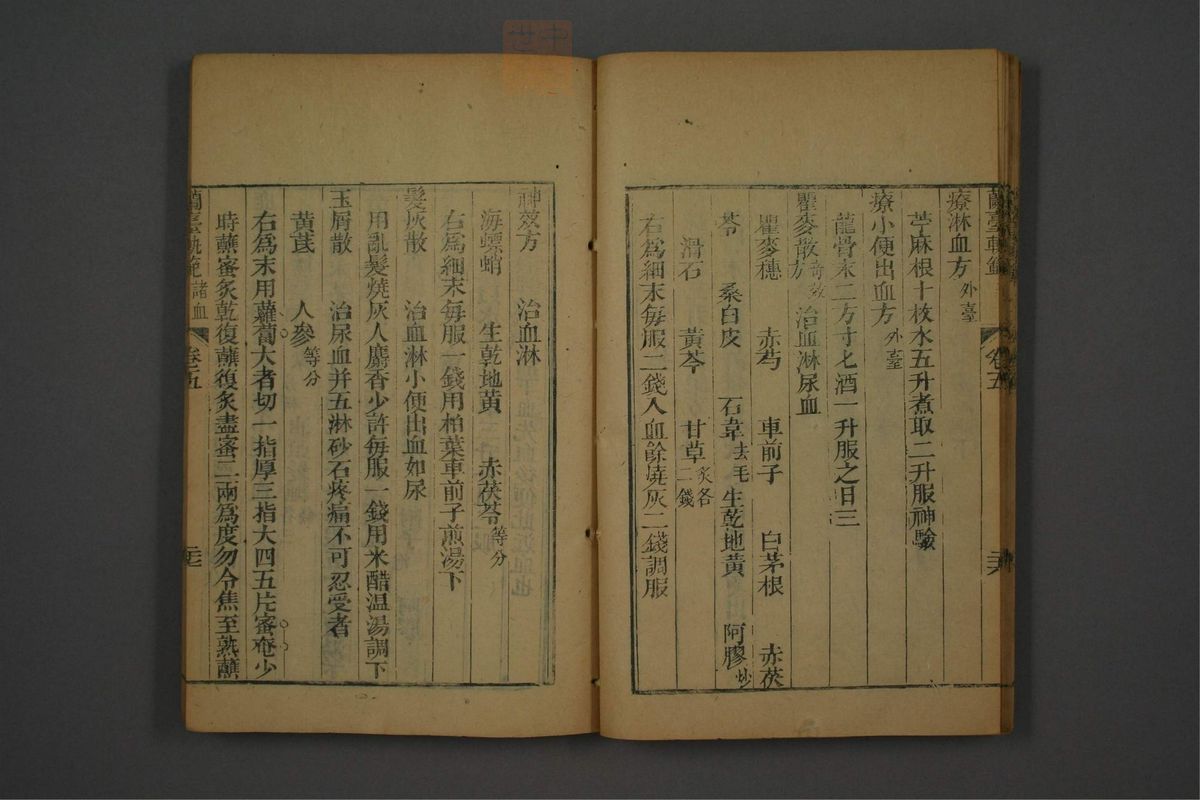 蘭臺軌範 卷五 二六
療淋血方外臺
苧麻根十枚水五升煮取二升服神驗
療小便出血方外臺
龍骨末二方寸匕酒一升服之日三
瞿麥散奇效方 治血淋尿血
瞿麥穗 赤芍 車前子 白茅根 赤茯
苓 桑白皮 石韋去毛 生乾地黃 阿膠炒
滑石 黃芩 甘草炙各二錢
右爲細末每服二錢入血餘燒灰二錢調服
神效方 治血淋
海螵蛸 生乾地黃 赤茯苓等分
右爲細末每服一錢用柏葉車前子煎湯下
髮灰散 治血淋小便出血如尿
用亂髮燒灰人麝香少許每服一錢用米醋温湯調下
玉屑散 治尿血并五淋砂石疼痛不可忍受者
黃芪 人參等分
右爲末用蘿蔔大者切一指厚三指大四五片蜜奄少
時蘸蜜炙乾復蘸復炙盡蜜二兩爲度勿令焦至熟蘸
蘭臺軌範 諸血 卷五 二七